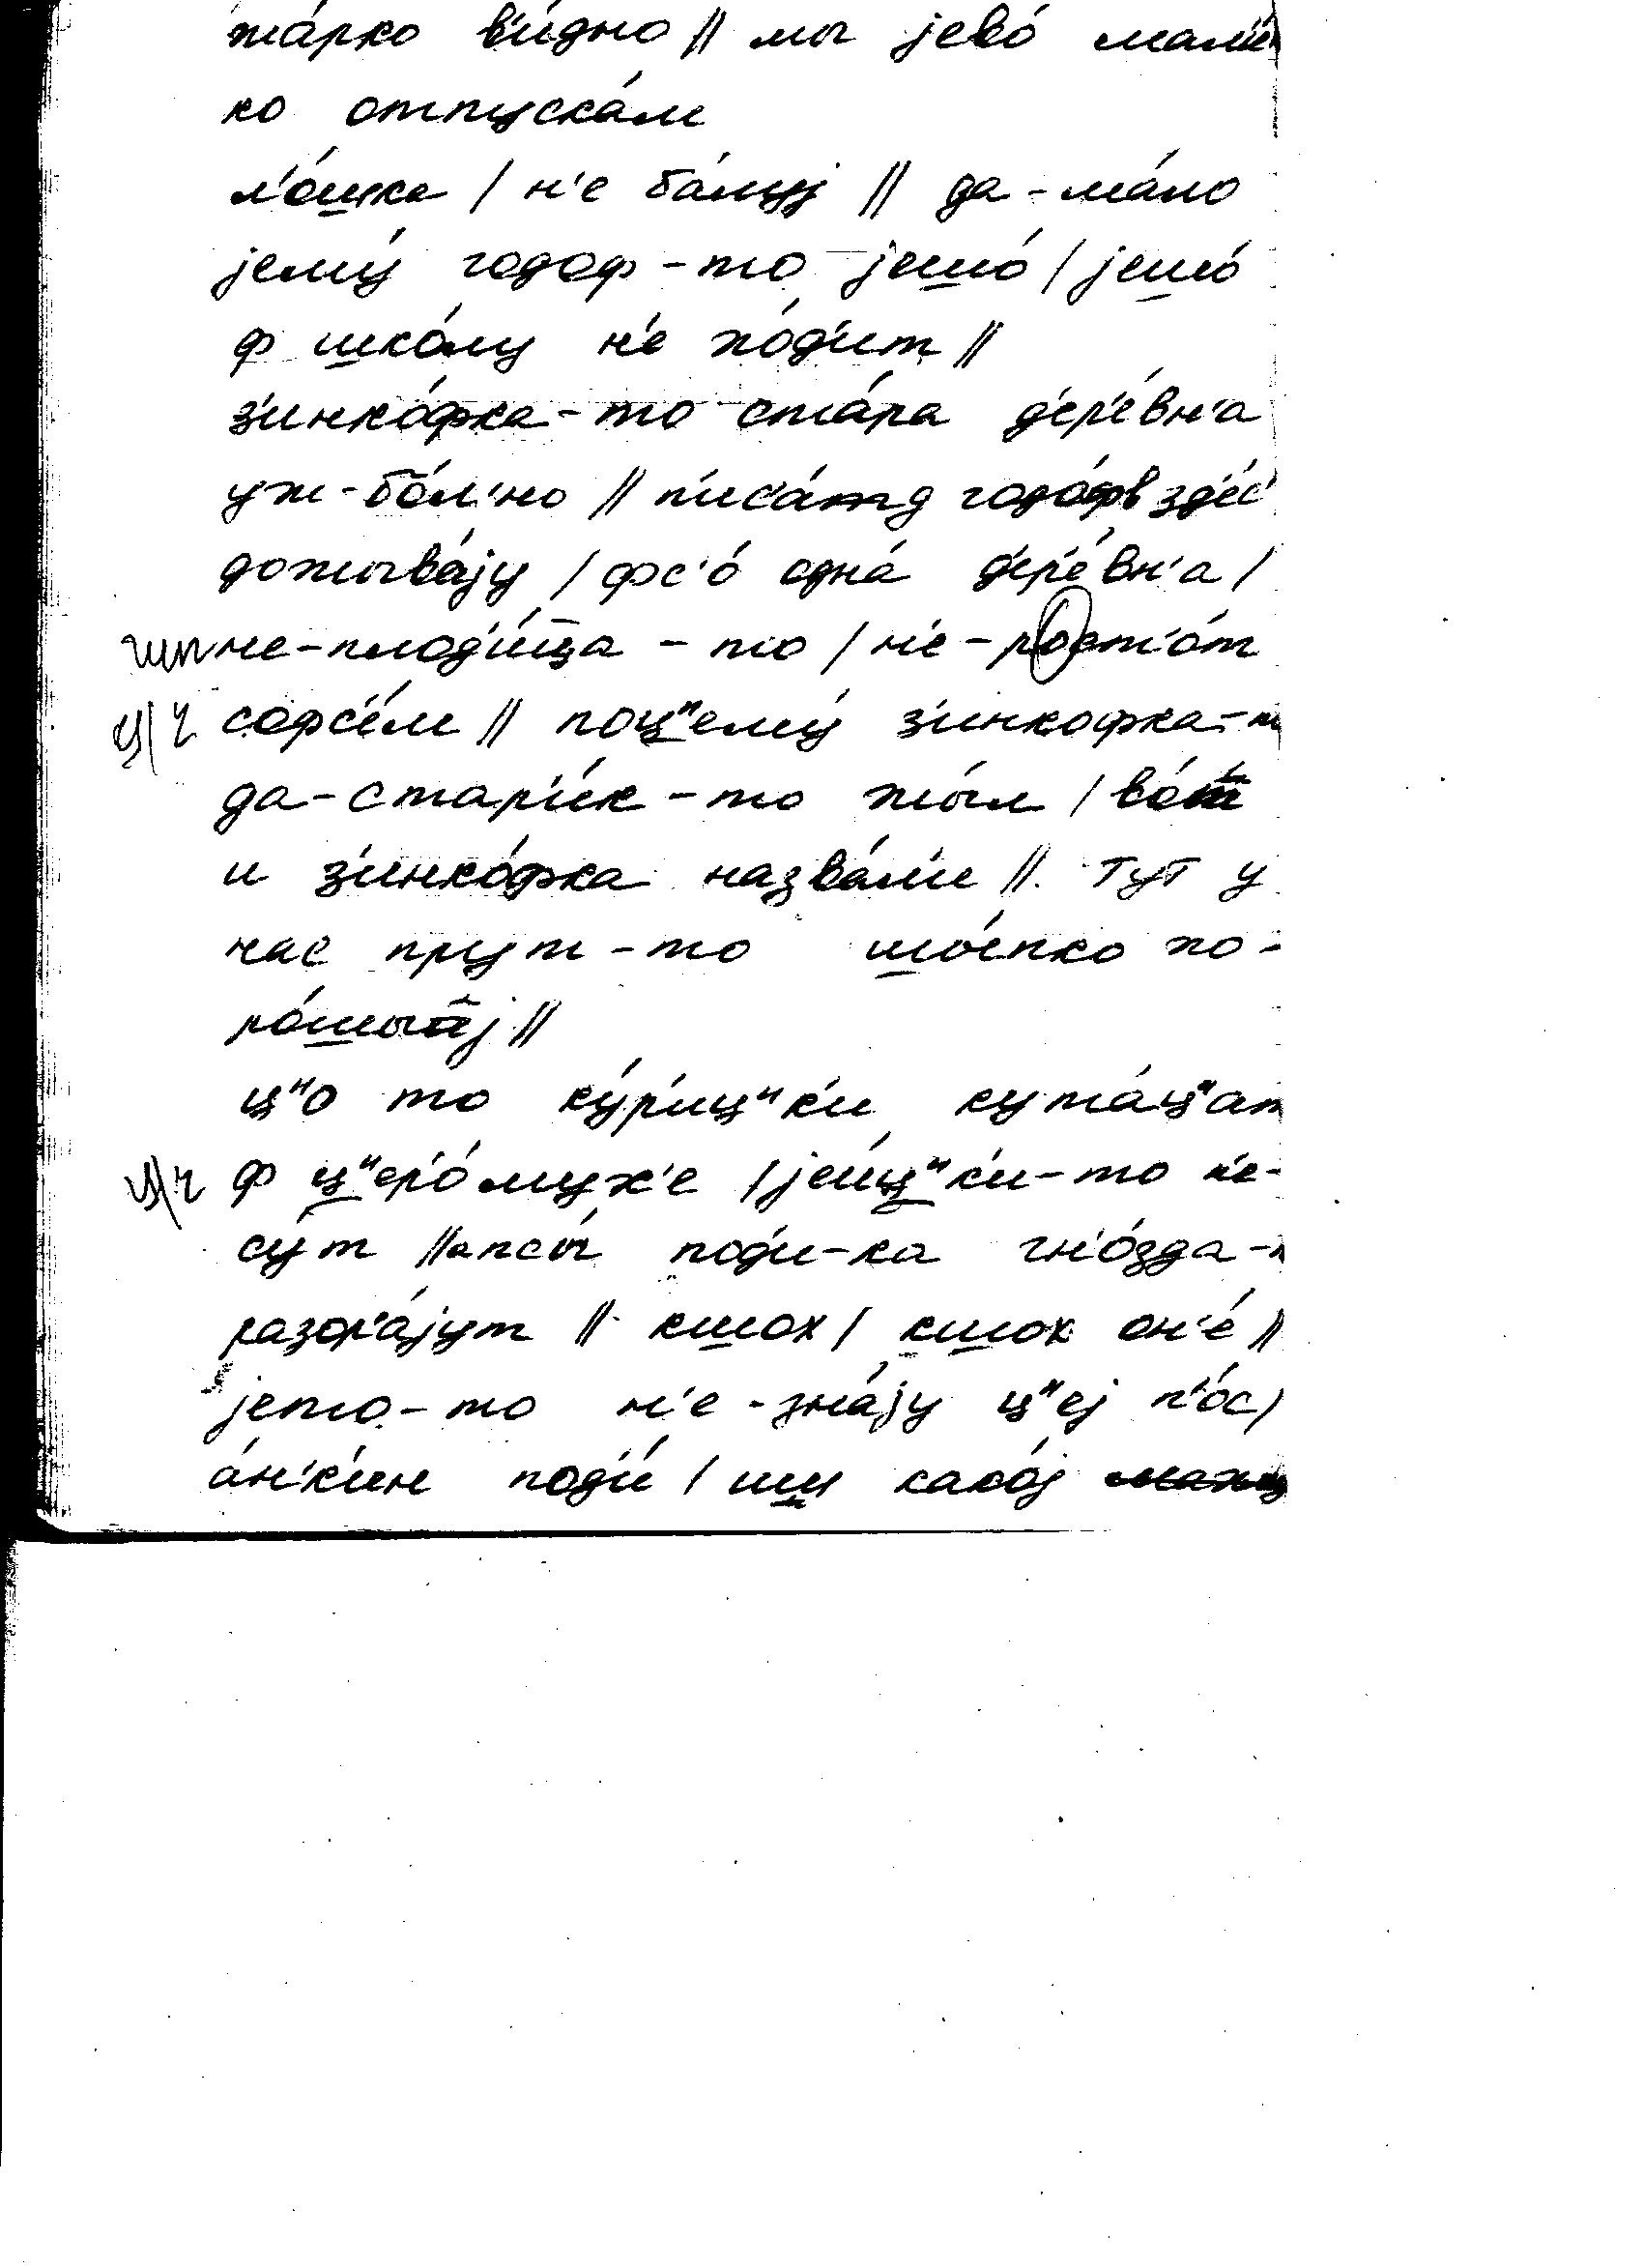 жа́рко в'и́дно // мы jево́ мал'е́н
ко отпуска́л
л'о́шка / н'е ба́луj // да-ма́ло
jему́ годоф-то jешо́ / jешо́
ф шко́лу н'е хо́д'ит //
з'инко́фка-то ста́ра д'ер'е́вн'а
уж-бо́л'но // п'ис'а́т годо́ф зд'ес'
дожыва́jу / фс'о́ одна́ д'ер'е́вн'а /
не-плод'и́ца-то / н'е-рост'о́т
софс'е́м // поц"ему́ з'инкофка-т
да-стар'и́к-то жы́л / во́т
и з'инко́фка назва́л'и // тут у
нас прут-то шы́пко хо-
ро́шыj //
ц"о то ку́р'иц"к'и кута́ц"ат
ц/ч ф ц"ер'о́мух'е / jеиц"к'и-то н'е-
су́т // а псы́ под'и-ка гн'о́зда-
разор'а́jут // кшох / кшох он'е́ //
jето-то н'е-зна́jу ц"еj п'о́с /
а́н'к'ин под'и́ / иш како́j